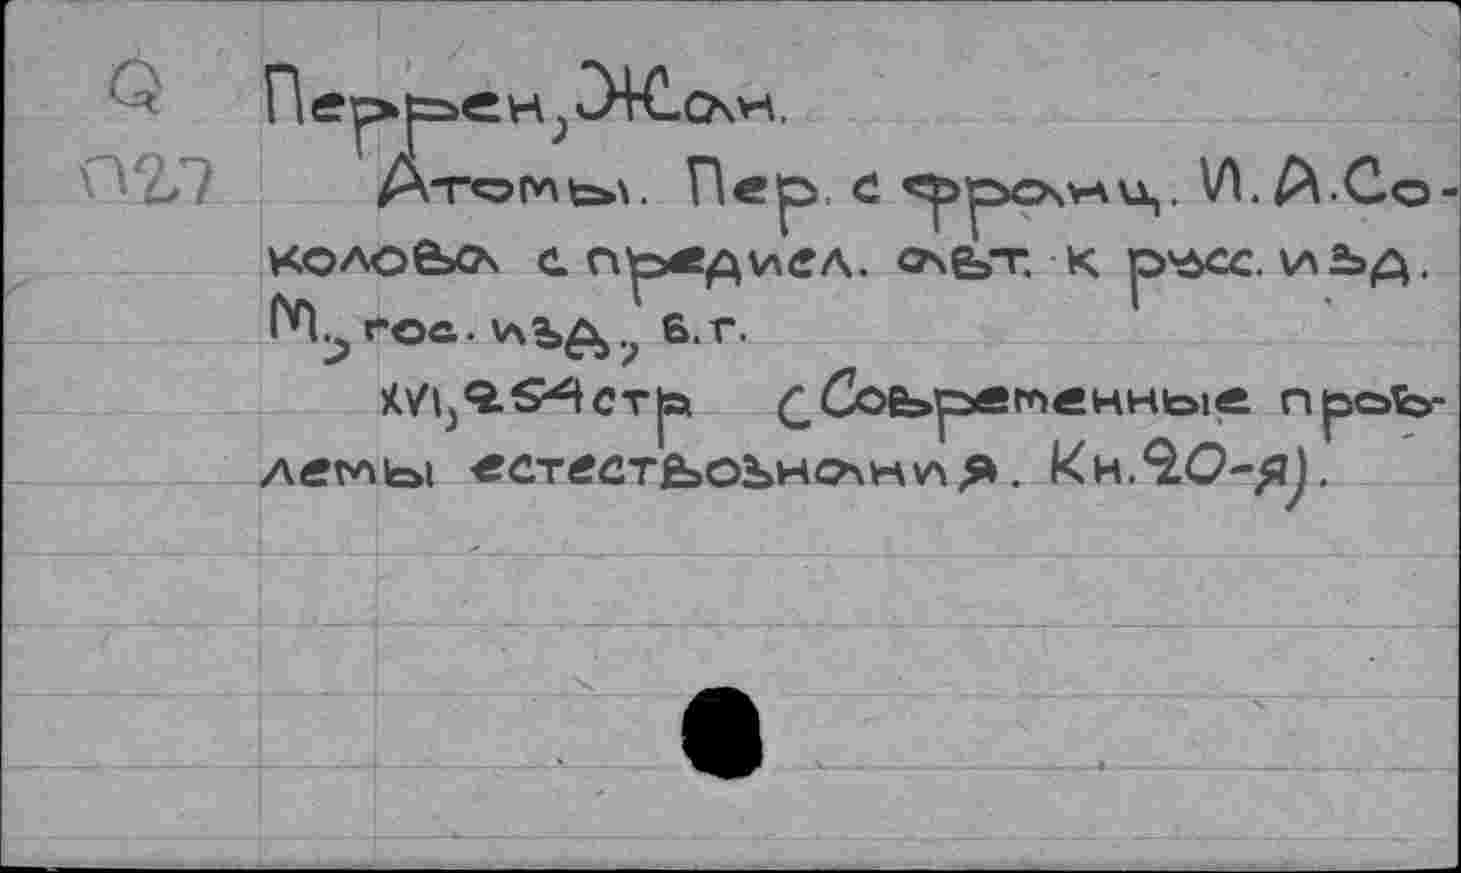 Q Перрен, Жан.
П27 Атомы. Пер. с франц. И. А. Со-
колова с предисл. авт. к русс. изд.
М., гос. изд., б.г.
XVI, 254 стр (Современные проб-
лемы естествознания. Кн. 20-я).